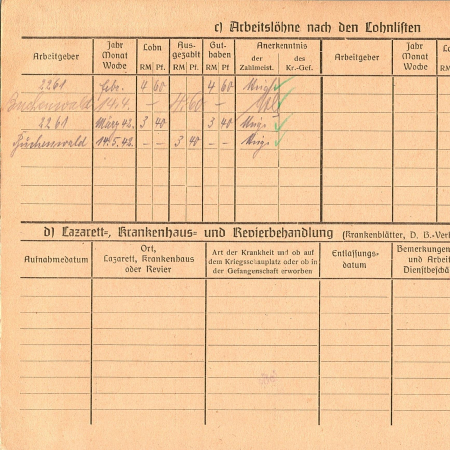 c) Arbeitslöhne nach den Lohnlisten
Arbeitgeber Jahr Monat Woche Lohn RM Pf. Ausgezahlt RM Pf. Guthaben RM Pf Anerkenntnis der Zahlmeist. des Kr.-Gef. Arbeitgeber Jahr Monat Woche
2261 Febr. 4 60 4 60
Buchenwald 14.4. – – 4 60
2261 März 42. 3 40 3 40
Buchenwald 14.5.42. – – 3 40
d) Lazarett-, Krankenhaus- und Revierbehandlung (Krankenblätter, D. B.-Verf
Aufnahmedatum Ort, Lazarett, Krankenhaus oder Revier Art der Krankheit und ob auf dem Kriegsschauplatz oder ob in der Gefangenschaft erworben Entlassungs-datum Bemerkungen und Arbeit Dienstbeschä